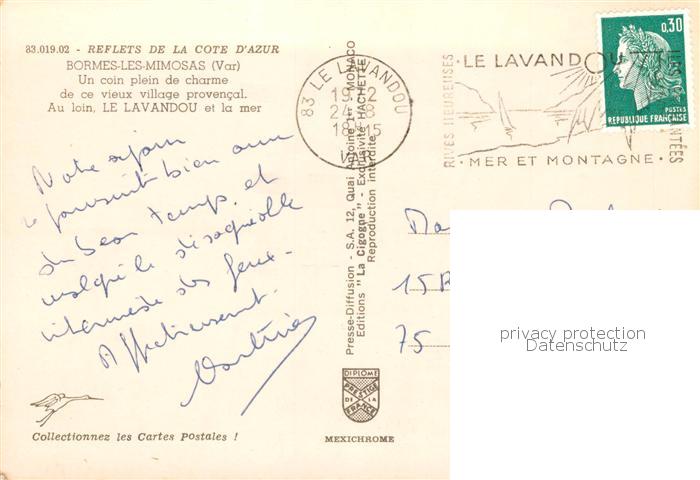 83.019.02 - REFLETS DE LA COTE D'AZUR
BORMES-LES-MIMOSAS (Var)
Un coin plein de charme
de ce vieux village provençal.
Au loin, LE LAVANDOU et la mer
Notre séjour
se poursuit bien avec
du beau temps, et
malgré le désagréable
intermède des feux.
Affectueusement.
Collectionnez les Cartes Postales !
Presse-Diffusion - S.A. 12, Quai Antoine 1er - MONACO
Editions "La Cigogne" - Exclusivité HACHETTE
Reproduction interdite
DIPLOME
PRESTIGE
DE LA
FRANCE
MEXICHROME
83 LE LAVANDOU
RIVES HEUREUSES
LE LAVANDOU
· MER ET MONTAGNE ·
0,30
POSTES
REPUBLIQUE FRANÇAISE
75
privacy protection
Datenschutz